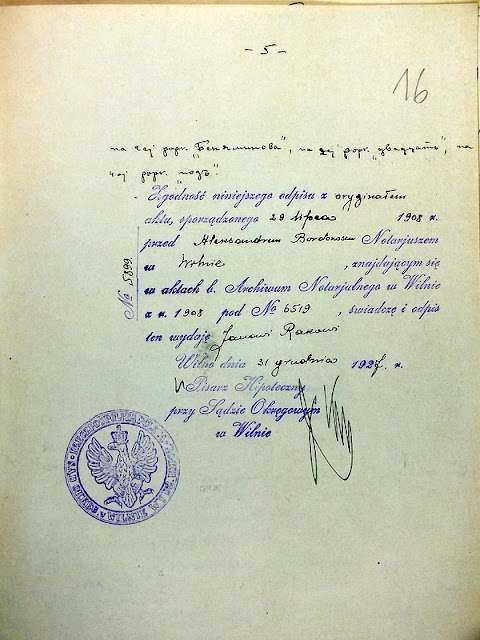 - 5 -
16
na 2ej popr. "Бенямінова", na 2ej popr. "двадцать", na
4ej popr. "подъ".
Zgodność niniejszego odpisu z oryginałem
aktu, sporządzonego 29 lipca 1908 r.
przed Aleksandrem Notarjuszem
w Wilnie, znajdującym się
w aktach b. Archiwum Notarjalnego w Wilnie
z r. 1908 pod № 6519, świadczę i odpis
ten wydaję Janowi
Wilno dnia 31 grudnia 1927. r.
Pisarz Hipoteczny
przy Sądzie Okręgowym
w Wilnie
№ 5899